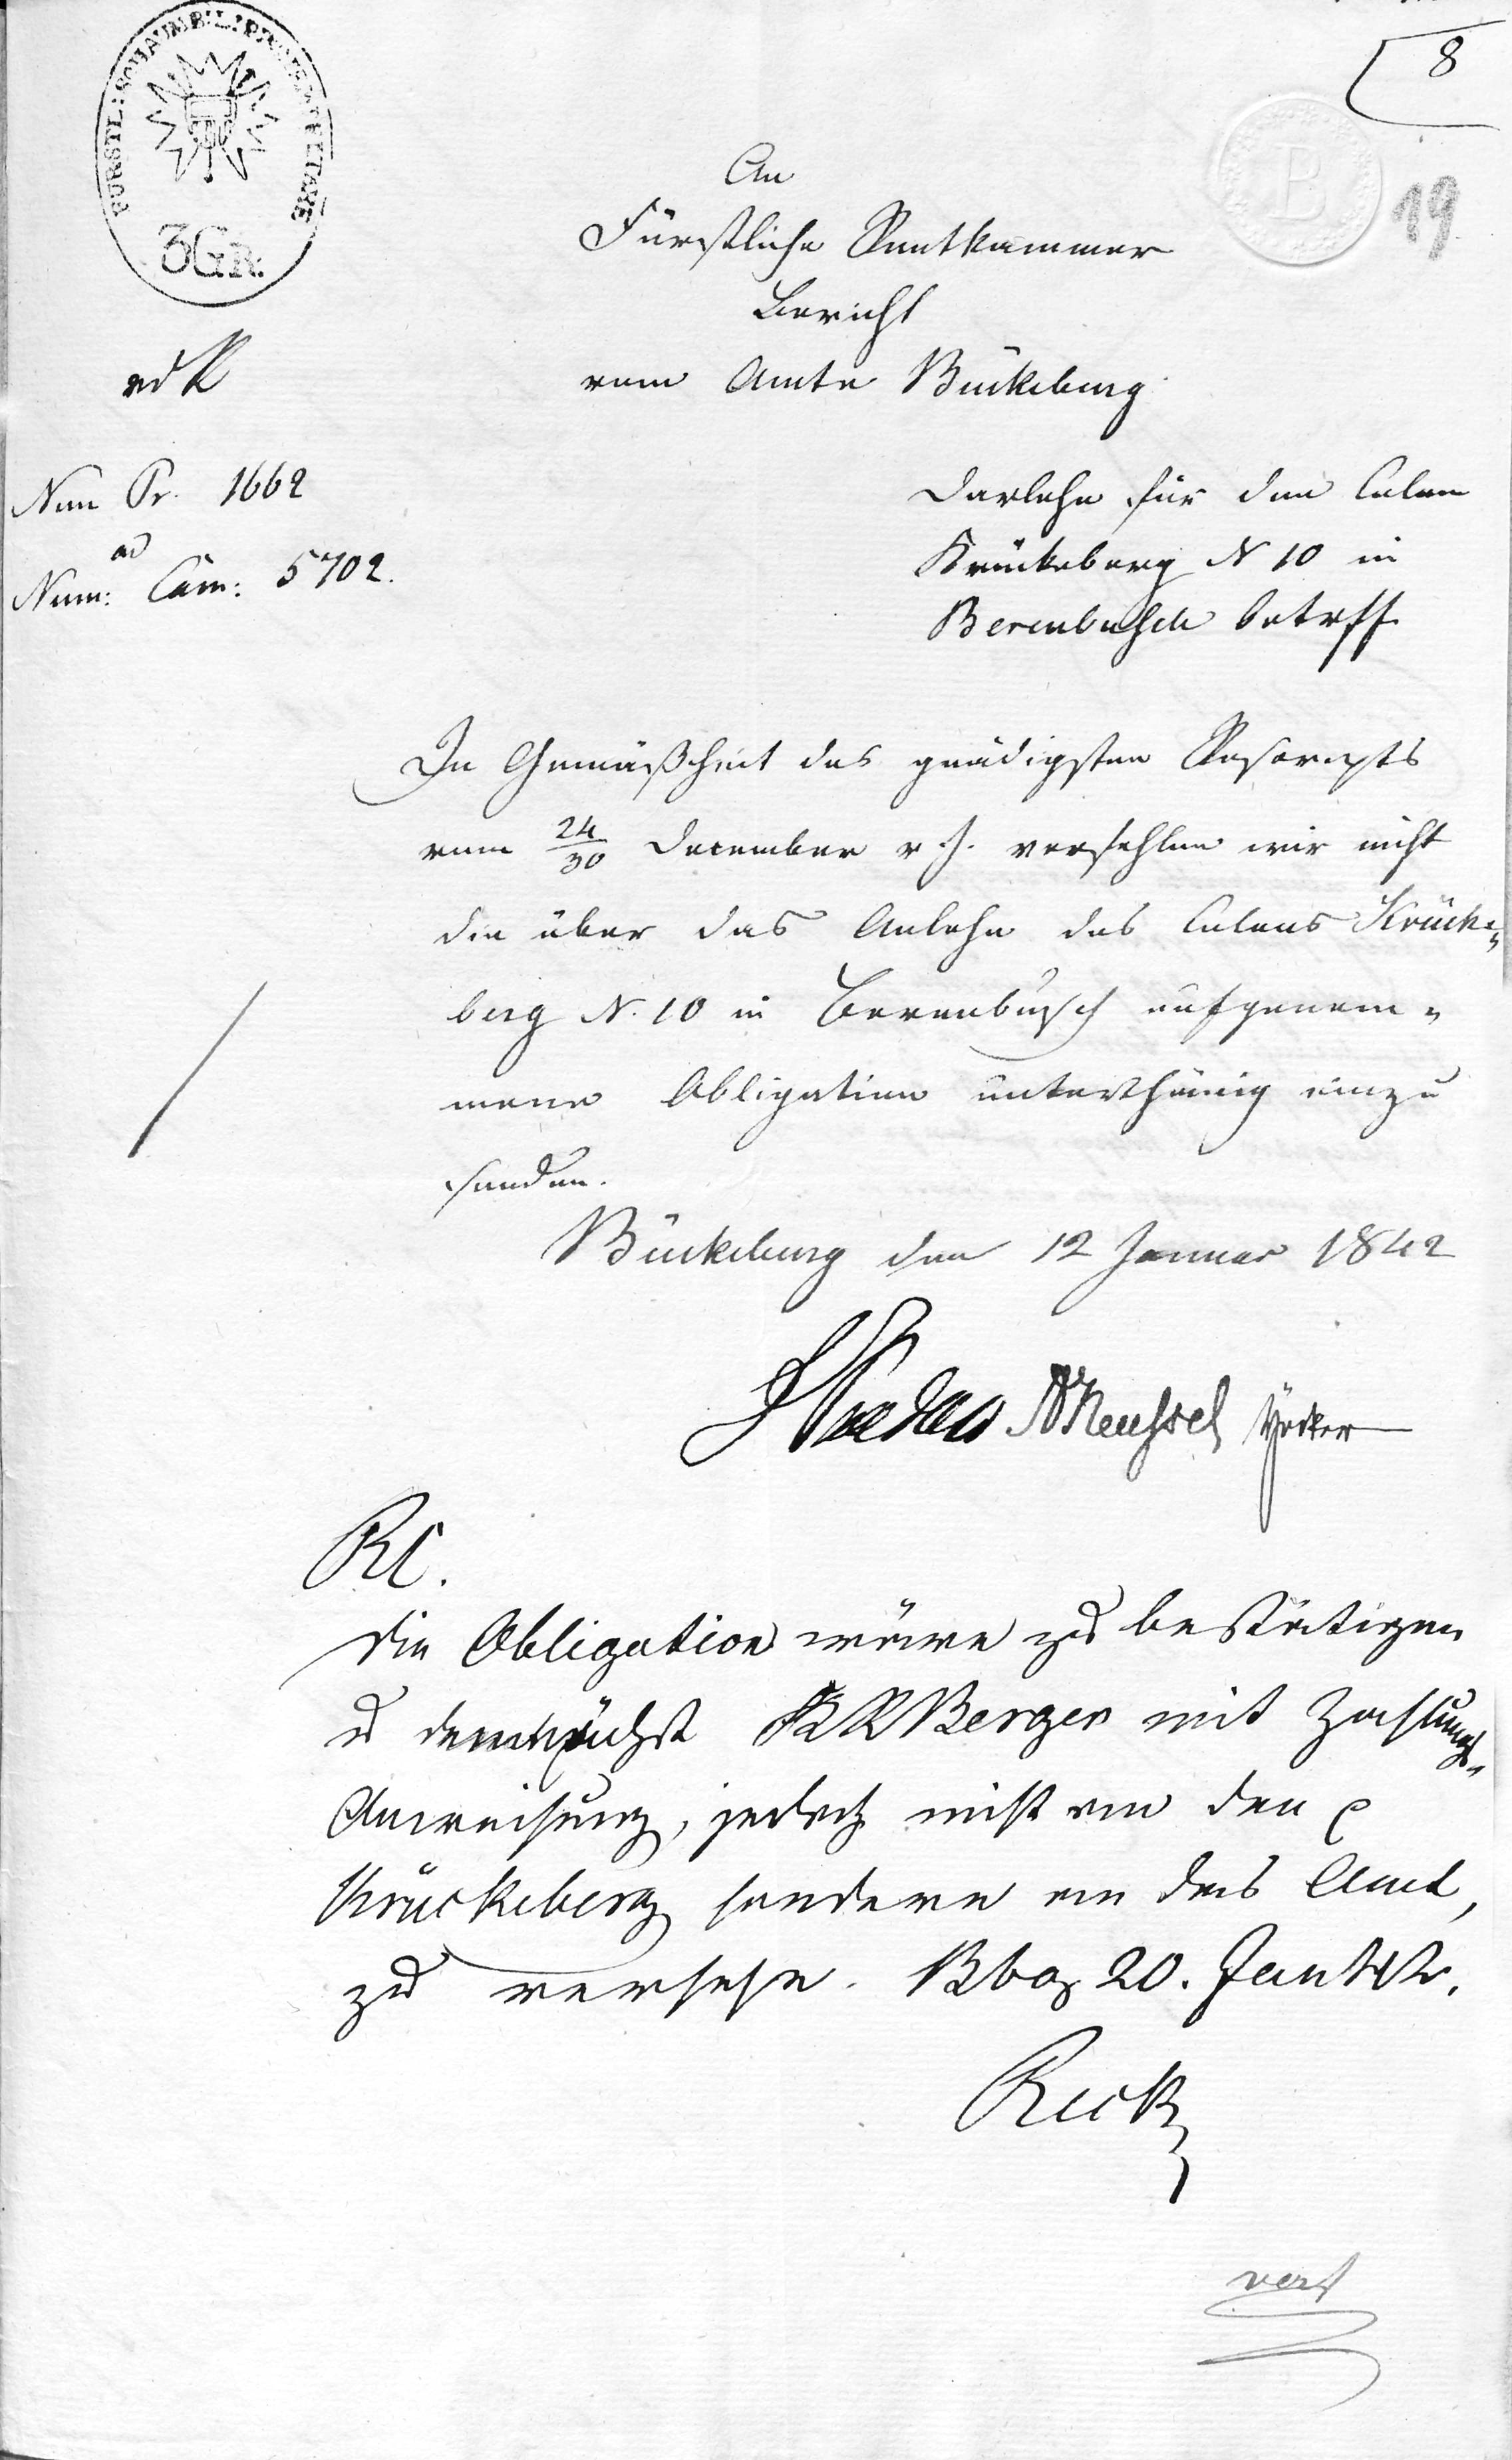 8
19
3 GR.
An
Fürstliche Rentkammer
Bericht
vom Amte Bückeburg
Num Pr. 1662
ad
Num: Cam: 5702.
Darlehn für den Colon
Krückeberg N 10 in
Berenbusch betrff
In Gemäßheit des gnädigsten Rescripts
vom 24/30 December v. J. verfehlen wir nicht
die über das Anlehn des Colons Krücke-
berg N. 10 in Berenbusch aufgenom-
mene Obligation unterthänig einzu
senden.
Bückeburg den 12 Januar 1842
RC.
Die Obligation wäre zu bestätigen
u demnächst Berger mit Zahlungs-
Anweisung, jedoch nicht an den
Krückeberg sondern an das Amt,
zu versehn. Bbg 20. Jan